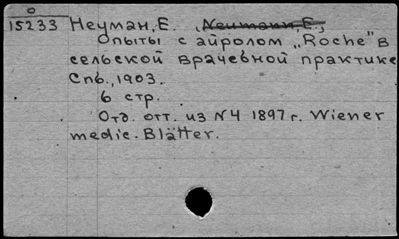 0
15233 Неуман, Е. , Neumann, E.,
Опыты с айролом „Roche" в
сельской врачебной практике
Спб., 1903.
6 стр.
Отд. отт. из N4 1897 г. Wiener
medic. Blätter.